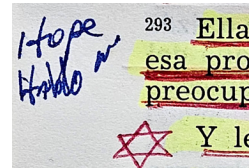 Hope
Hablo
293 Ella
esa pro
preocup
Y le